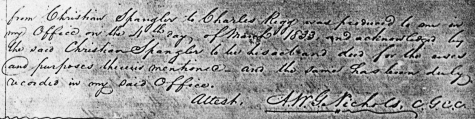 from Christian Spangler to Charles Rigg was produced to me in
my Office, on the 4th day of March 1833 and acknowledged by
the said Christian Spangler to be his act and deed for the uses
and purposes therein mentioned and the same has been duly
recorded in my said Office.
Attest. A.W.G. Nichols, C.G.C.C.